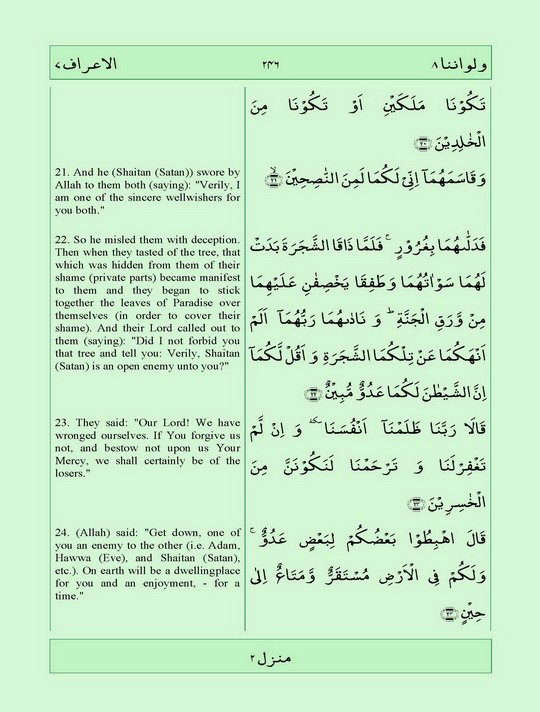 الاعراف ۷
۲۴۶
ولواننا ۸
تَكُوْنَا مَلَكَيْنِ اَوْ تَكُوْنَا مِنَ
الْخٰلِدِيْنَ ﴿۲۰﴾
21. And he (Shaitan (Satan)) swore by
Allah to them both (saying): "Verily, I
am one of the sincere wellwishers for
you both."
وَقَاسَمَهُمَاۤ اِنِّىْ لَكُمَا لَمِنَ النّٰصِحِيْنَ ۙ﴿۲۱﴾
22. So he misled them with deception.
Then when they tasted of the tree, that
which was hidden from them of their
shame (private parts) became manifest
to them and they began to stick
together the leaves of Paradise over
themselves (in order to cover their
shame). And their Lord called out to
them (saying): "Did I not forbid you
that tree and tell you: Verily, Shaitan
(Satan) is an open enemy unto you?"
فَدَلّٰٮهُمَا بِغُرُوْرٍ ۚ فَلَمَّا ذَاقَا الشَّجَرَةَ بَدَتْ
لَهُمَا سَوْاٰتُهُمَا وَطَفِقَا يَخْصِفٰنِ عَلَيْهِمَا
مِنْ وَّرَقِ الْجَنَّةِ ؕ وَ نَادٰٮهُمَا رَبُّهُمَاۤ اَلَمْ
اَنْهَكُمَا عَنْ تِلْكُمَا الشَّجَرَةِ وَ اَقُلْ لَّكُمَاۤ
اِنَّ الشَّيْطٰنَ لَكُمَا عَدُوٌّ مُّبِيْنٌ ﴿۲۲﴾
23. They said: "Our Lord! We have
wronged ourselves. If You forgive us
not, and bestow not upon us Your
Mercy, we shall certainly be of the
losers."
قَالَا رَبَّنَا ظَلَمْنَاۤ اَنْفُسَنَا ٚ وَ اِنْ لَّمْ
تَغْفِرْلَنَا وَ تَرْحَمْنَا لَنَكُوْنَنَّ مِنَ
الْخٰسِرِيْنَ ﴿۲۳﴾
24. (Allah) said: "Get down, one of
you an enemy to the other (i.e. Adam,
Hawwa (Eve), and Shaitan (Satan),
etc.). On earth will be a dwellingplace
for you and an enjoyment, - for a
time."
قَالَ اهْبِطُوْا بَعْضُكُمْ لِبَعْضٍ عَدُوٌّ ۚ
وَلَكُمْ فِى الْاَرْضِ مُسْتَقَرٌّ وَّمَتَاعٌ اِلٰى
حِيْنٍ ﴿۲۴﴾
منزل ۲